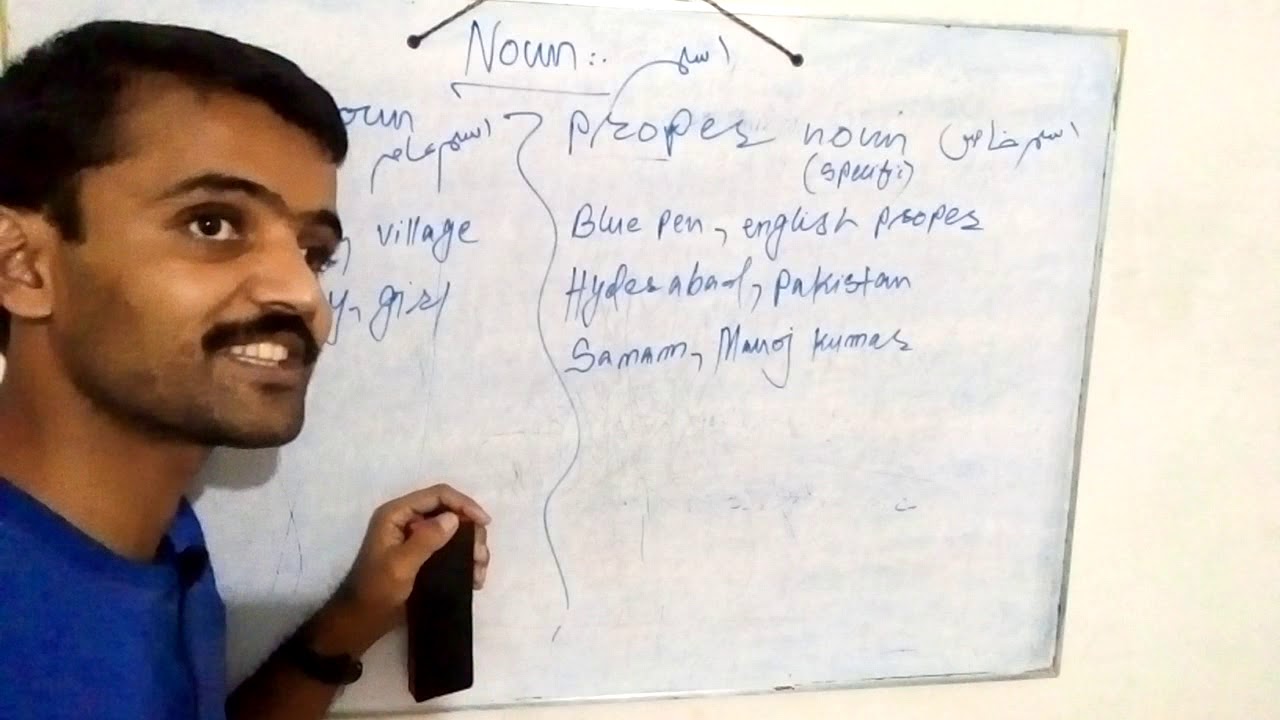 Noun:. اسم
noun proper noun اسم خاص
اسم عام (specific)
village Blue pen, english proper
girl Hyderabad, pakistan
Sanam, Manoj kumar